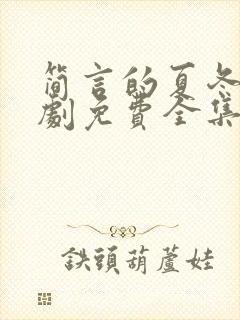 简言的夏冬
劇免費全集
鉄頭葫蘆娃